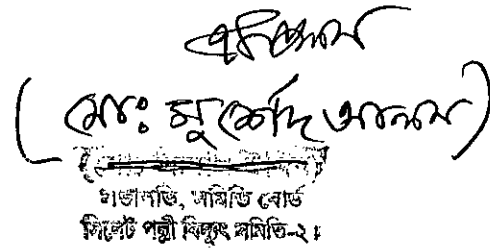 (মোঃ মুর্শেদ আলম)
সভাপতি, সমিতি বোর্ড
সিলেট পল্লী বিদ্যুৎ সমিতি-২।